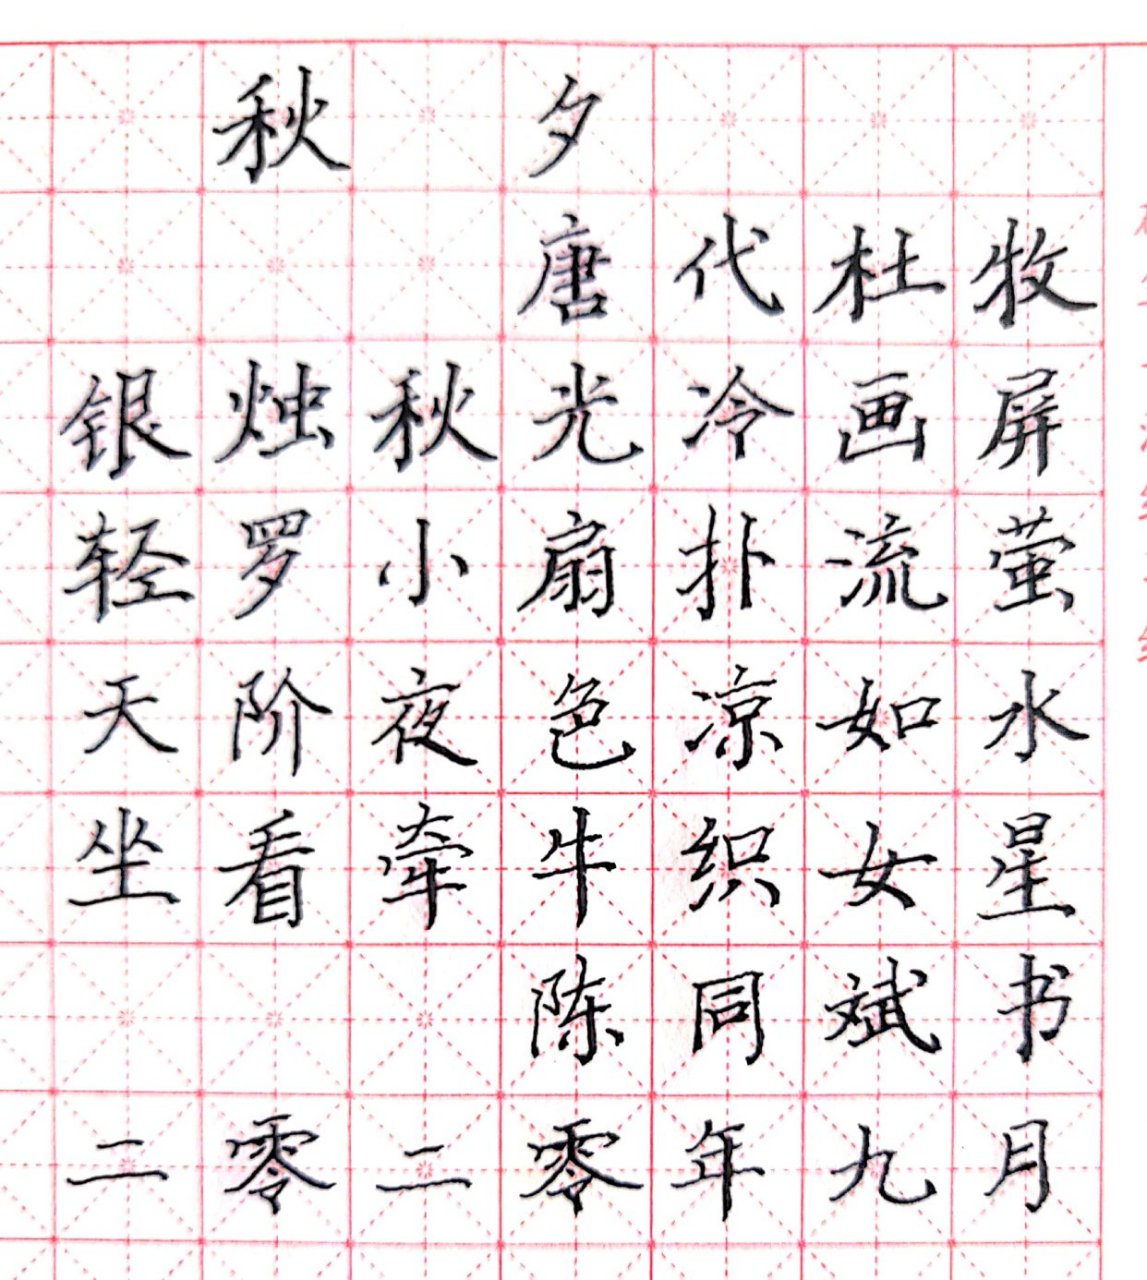 秋夕
唐代杜牧
银烛秋光冷画屏
轻罗小扇扑流萤
天阶夜色凉如水
坐看牵牛织女星
陈同斌书
二零二零年九月